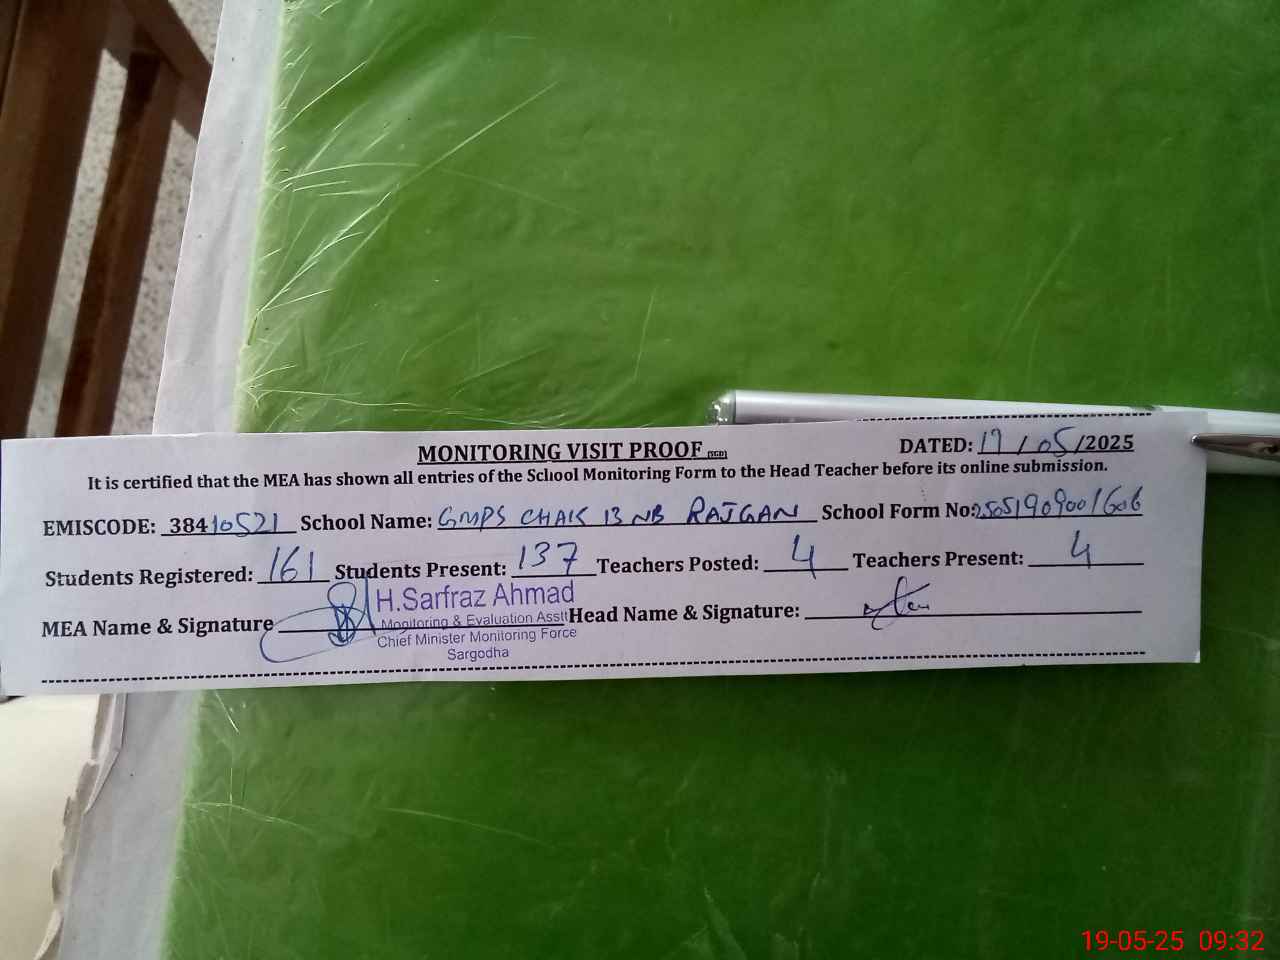 MONITORING VISIT PROOF (SGD)
DATED: 19/05/2025
It is certified that the MEA has shown all entries of the School Monitoring Form to the Head Teacher before its online submission.
EMISCODE: 38410521 School Name: GMPS CHAK 13 NB RAJGAN School Form No: 25051909001606
Students Registered: 161 Students Present: 137 Teachers Posted: 4 Teachers Present: 4
MEA Name & Signature H.Sarfraz Ahmad Head Name & Signature:
Monitoring & Evaluation Asstt
Chief Minister Monitoring Force
Sargodha
19-05-25 09:32